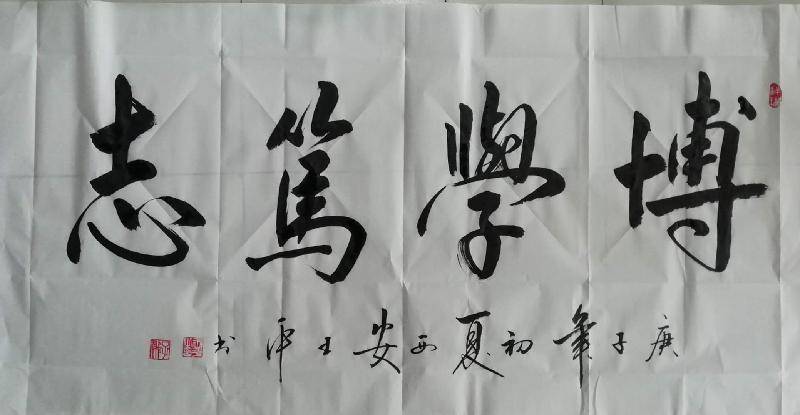 博學篤志
庚子年初夏西安王书